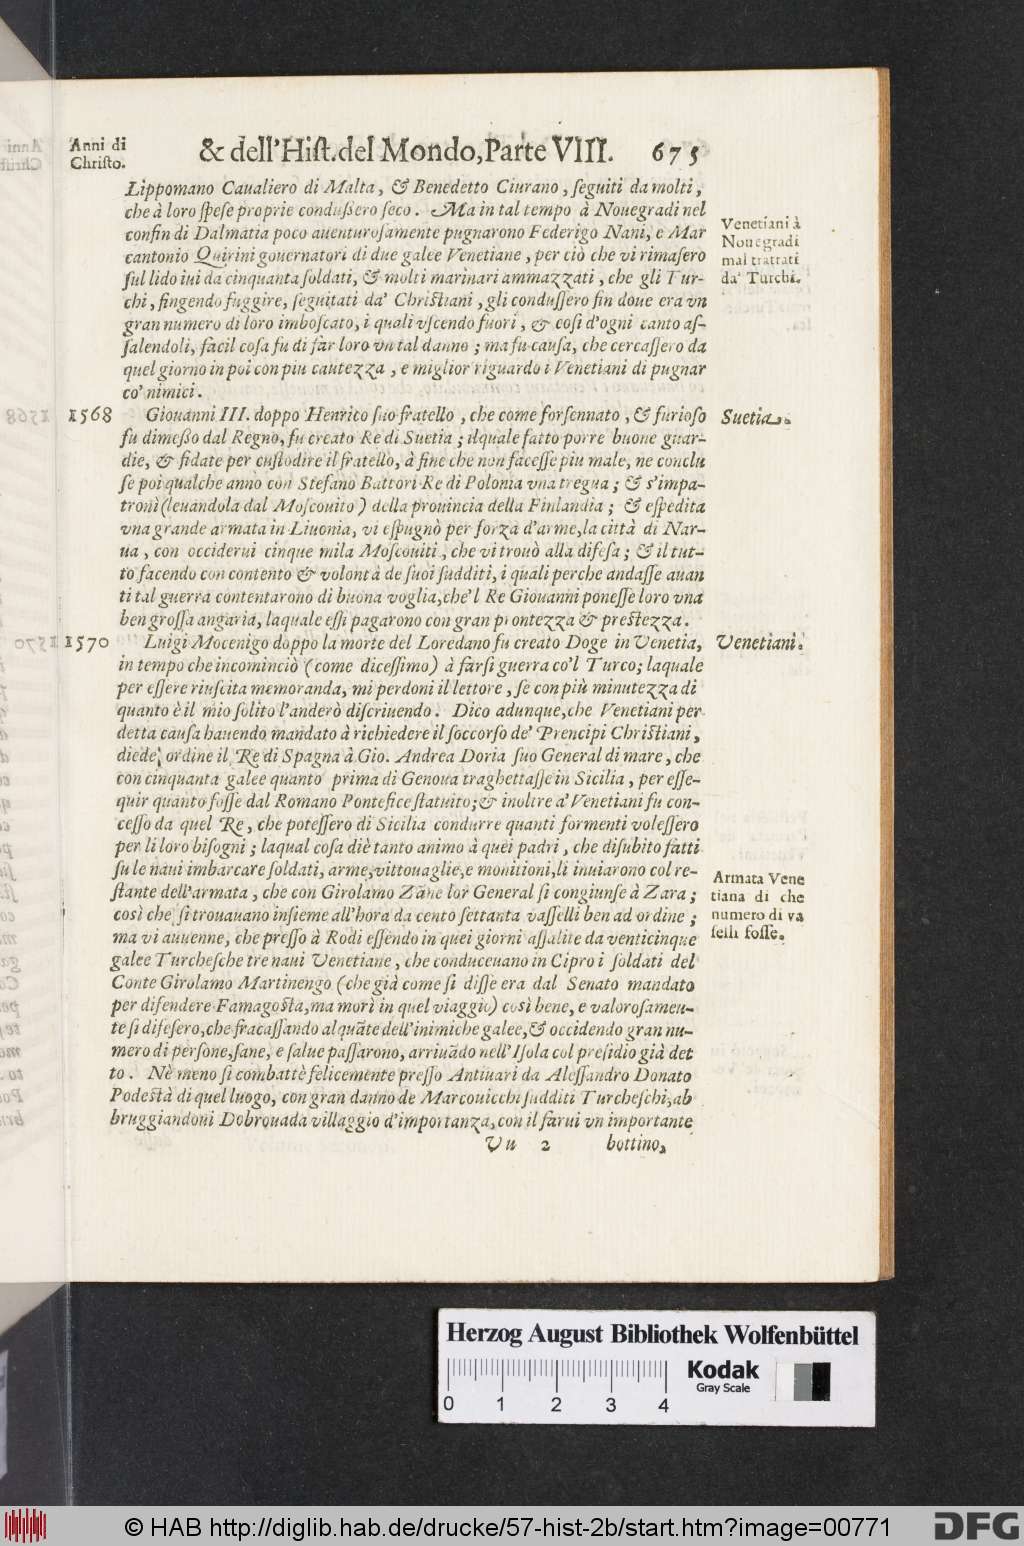 Anni di
Christo.
& dell'Hist. del Mondo, Parte VIII. 675
Lippomano Caualiero di Malta, & Benedetto Ciurano, seguiti da molti,
che à loro spese proprie condussero seco. Ma in tal tempo à Nouegradi nel
confin di Dalmatia poco auenturosamente pugnarono Federigo Nani, e Mar
cantonio Quirini gouernatori di due galee Venetiane, per ciò che vi rimasero
sul lido iui da cinquanta soldati, & molti marinari ammazzati, che gli Tur-
chi, fingendo fuggire, seguitati da' Christiani, gli condussero fin doue era vn
gran numero di loro imboscato, i quali vscendo fuori, & cosi d'ogni canto as-
salendoli, facil cosa fu di far loro vn tal danno; ma fu causa, che cercassero da
quel giorno in poi con piu cautezza, e miglior riguardo i Venetiani di pugnar
co' nimici.
Venetiani à
Nouegradi
mal trattati
da' Turchi.
1568 Giouanni III. doppo Henrico suo fratello, che come forsennato, & furioso
fu dimesso dal Regno, fu creato Re di Suetia; ilquale fatto porre buone guar-
die, & fidate per custodire il fratello, à fine che non facesse piu male, ne conclu
se poi qualche anno con Stefano Battori Re di Polonia vna tregua; & s'impa-
tronì (leuandola dal Moscouito) della prouincia della Finlandia; & espedita
vna grande armata in Liuonia, vi espugnò per forza d'arme, la città di Nar-
ua, con occiderui cinque mila Moscouiti, che vi trouò alla difesa; & il tut-
to facendo con contento & volontà de suoi sudditi, i quali perche andasse auan
ti tal guerra contentarono di buona voglia, che'l Re Giouanni ponesse loro vna
ben grossa angaria, laquale essi pagarono con gran prontezza & prestezza.
Suetia.
1570 Luigi Mocenigo doppo la morte del Loredano fu creato Doge in Venetia,
in tempo che incominciò (come dicessimo) à farsi guerra co'l Turco; laquale
per essere riuscita memoranda, mi perdoni il lettore, se con più minutezza di
quanto è il mio solito l'anderò discriuendo. Dico adunque, che Venetiani per
detta causa hauendo mandato à richiedere il soccorso de' Prencipi Christiani,
diede ordine il Re di Spagna à Gio. Andrea Doria suo General di mare, che
con cinquanta galee quanto prima di Genoua traghettasse in Sicilia, per esse-
quir quanto fosse dal Romano Pontefice statuito; & inoltre a' Venetiani fu con-
cesso da quel Re, che potessero di Sicilia condurre quanti formenti volessero
per li loro bisogni; laqual cosa diè tanto animo à quei padri, che disubito fatti
su le naui imbarcare soldati, arme, vittouaglie, e monitioni, li inuiarono col re-
stante dell'armata, che con Girolamo Zane lor General si congiunse à Zara;
così che si trouauano insieme all'hora da cento settanta vasselli ben ad ordine;
ma vi auuenne, che presso à Rodi essendo in quei giorni assalite da venticinque
galee Turchesche tre naui Venetiane, che conduceuano in Cipro i soldati del
Conte Girolamo Martinengo (che già come si disse era dal Senato mandato
per difendere Famagosta, ma morì in quel viaggio) così bene, e valorosamen-
te si difesero, che fracassando alquāte dell'inimiche galee, & occidendo gran nu-
mero di persone, sane, e salue passarono, arriuādo nell'Isola col presidio già det
to. Nè meno si combattè felicemente presso Antiuari da Alessandro Donato
Podestà di quel luogo, con gran danno de Marcouicchi sudditi Turcheschi, ab
bruggiandoui Dobrouada villaggio d'importanza, con il farui vn importante
Venetiani.
Armata Vene
tiana di che
numero di va
selli fosse.
Vu 2 bottino,
Herzog August Bibliothek Wolfenbüttel
0 1 2 3 4
Kodak
Gray Scale
© HAB http://diglib.hab.de/drucke/57-hist-2b/start.htm?image=00771
DFG